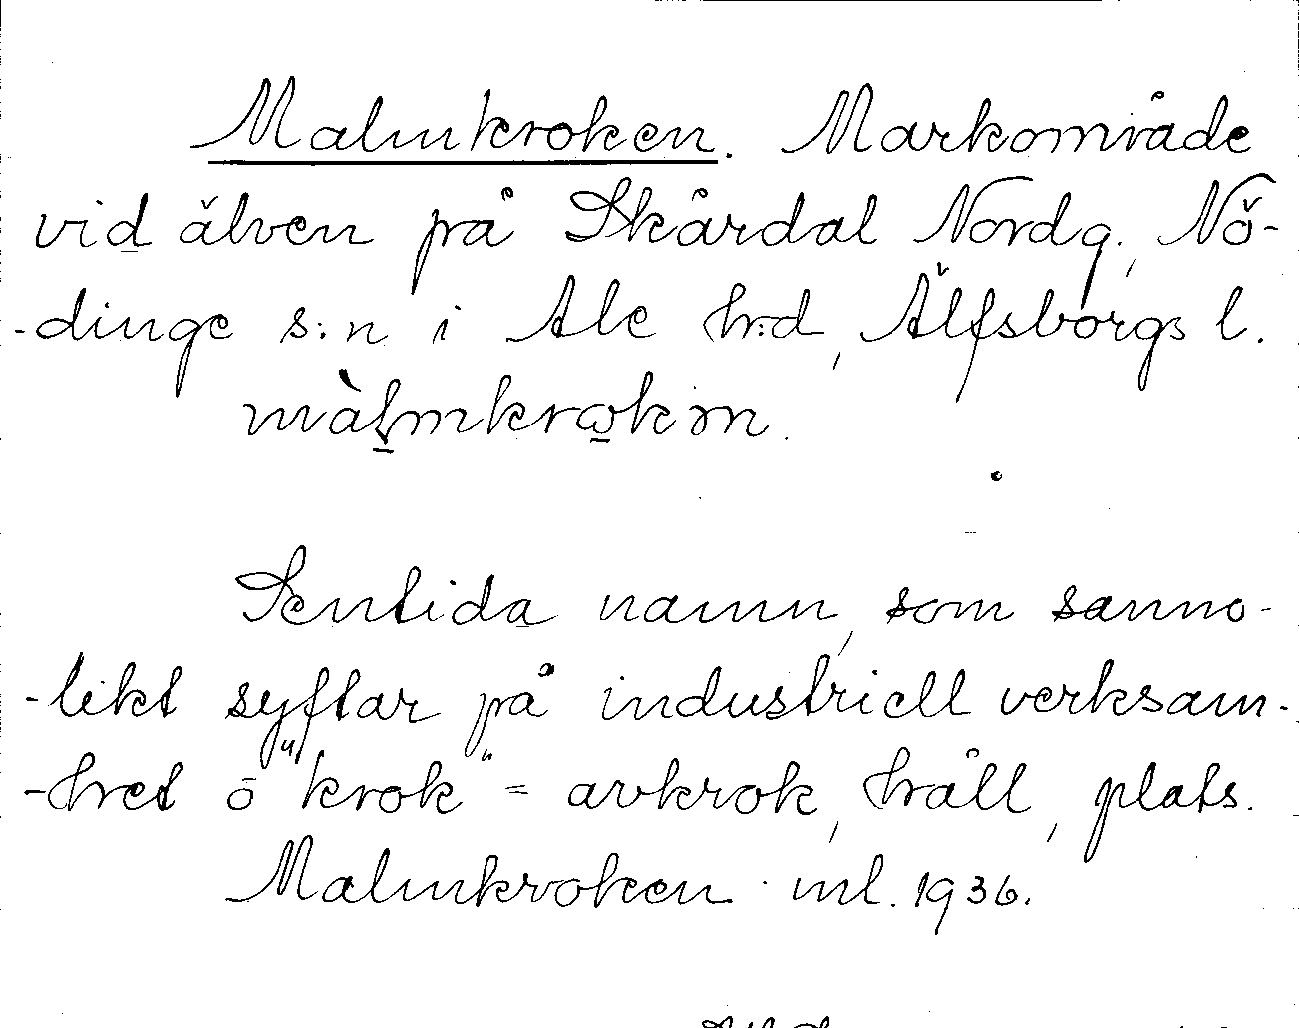 Malmkroken. Markområde
vid älven på Skårdal Nordg., Nö-
-dinge s:n i Ale h:d, Älfsborgs l.
Sentida namn, som sanno-
-likt syftar på industriell verksam-
-het o "krok" = avkrok, håll, plats.
Malmkroken · inl. 1936.